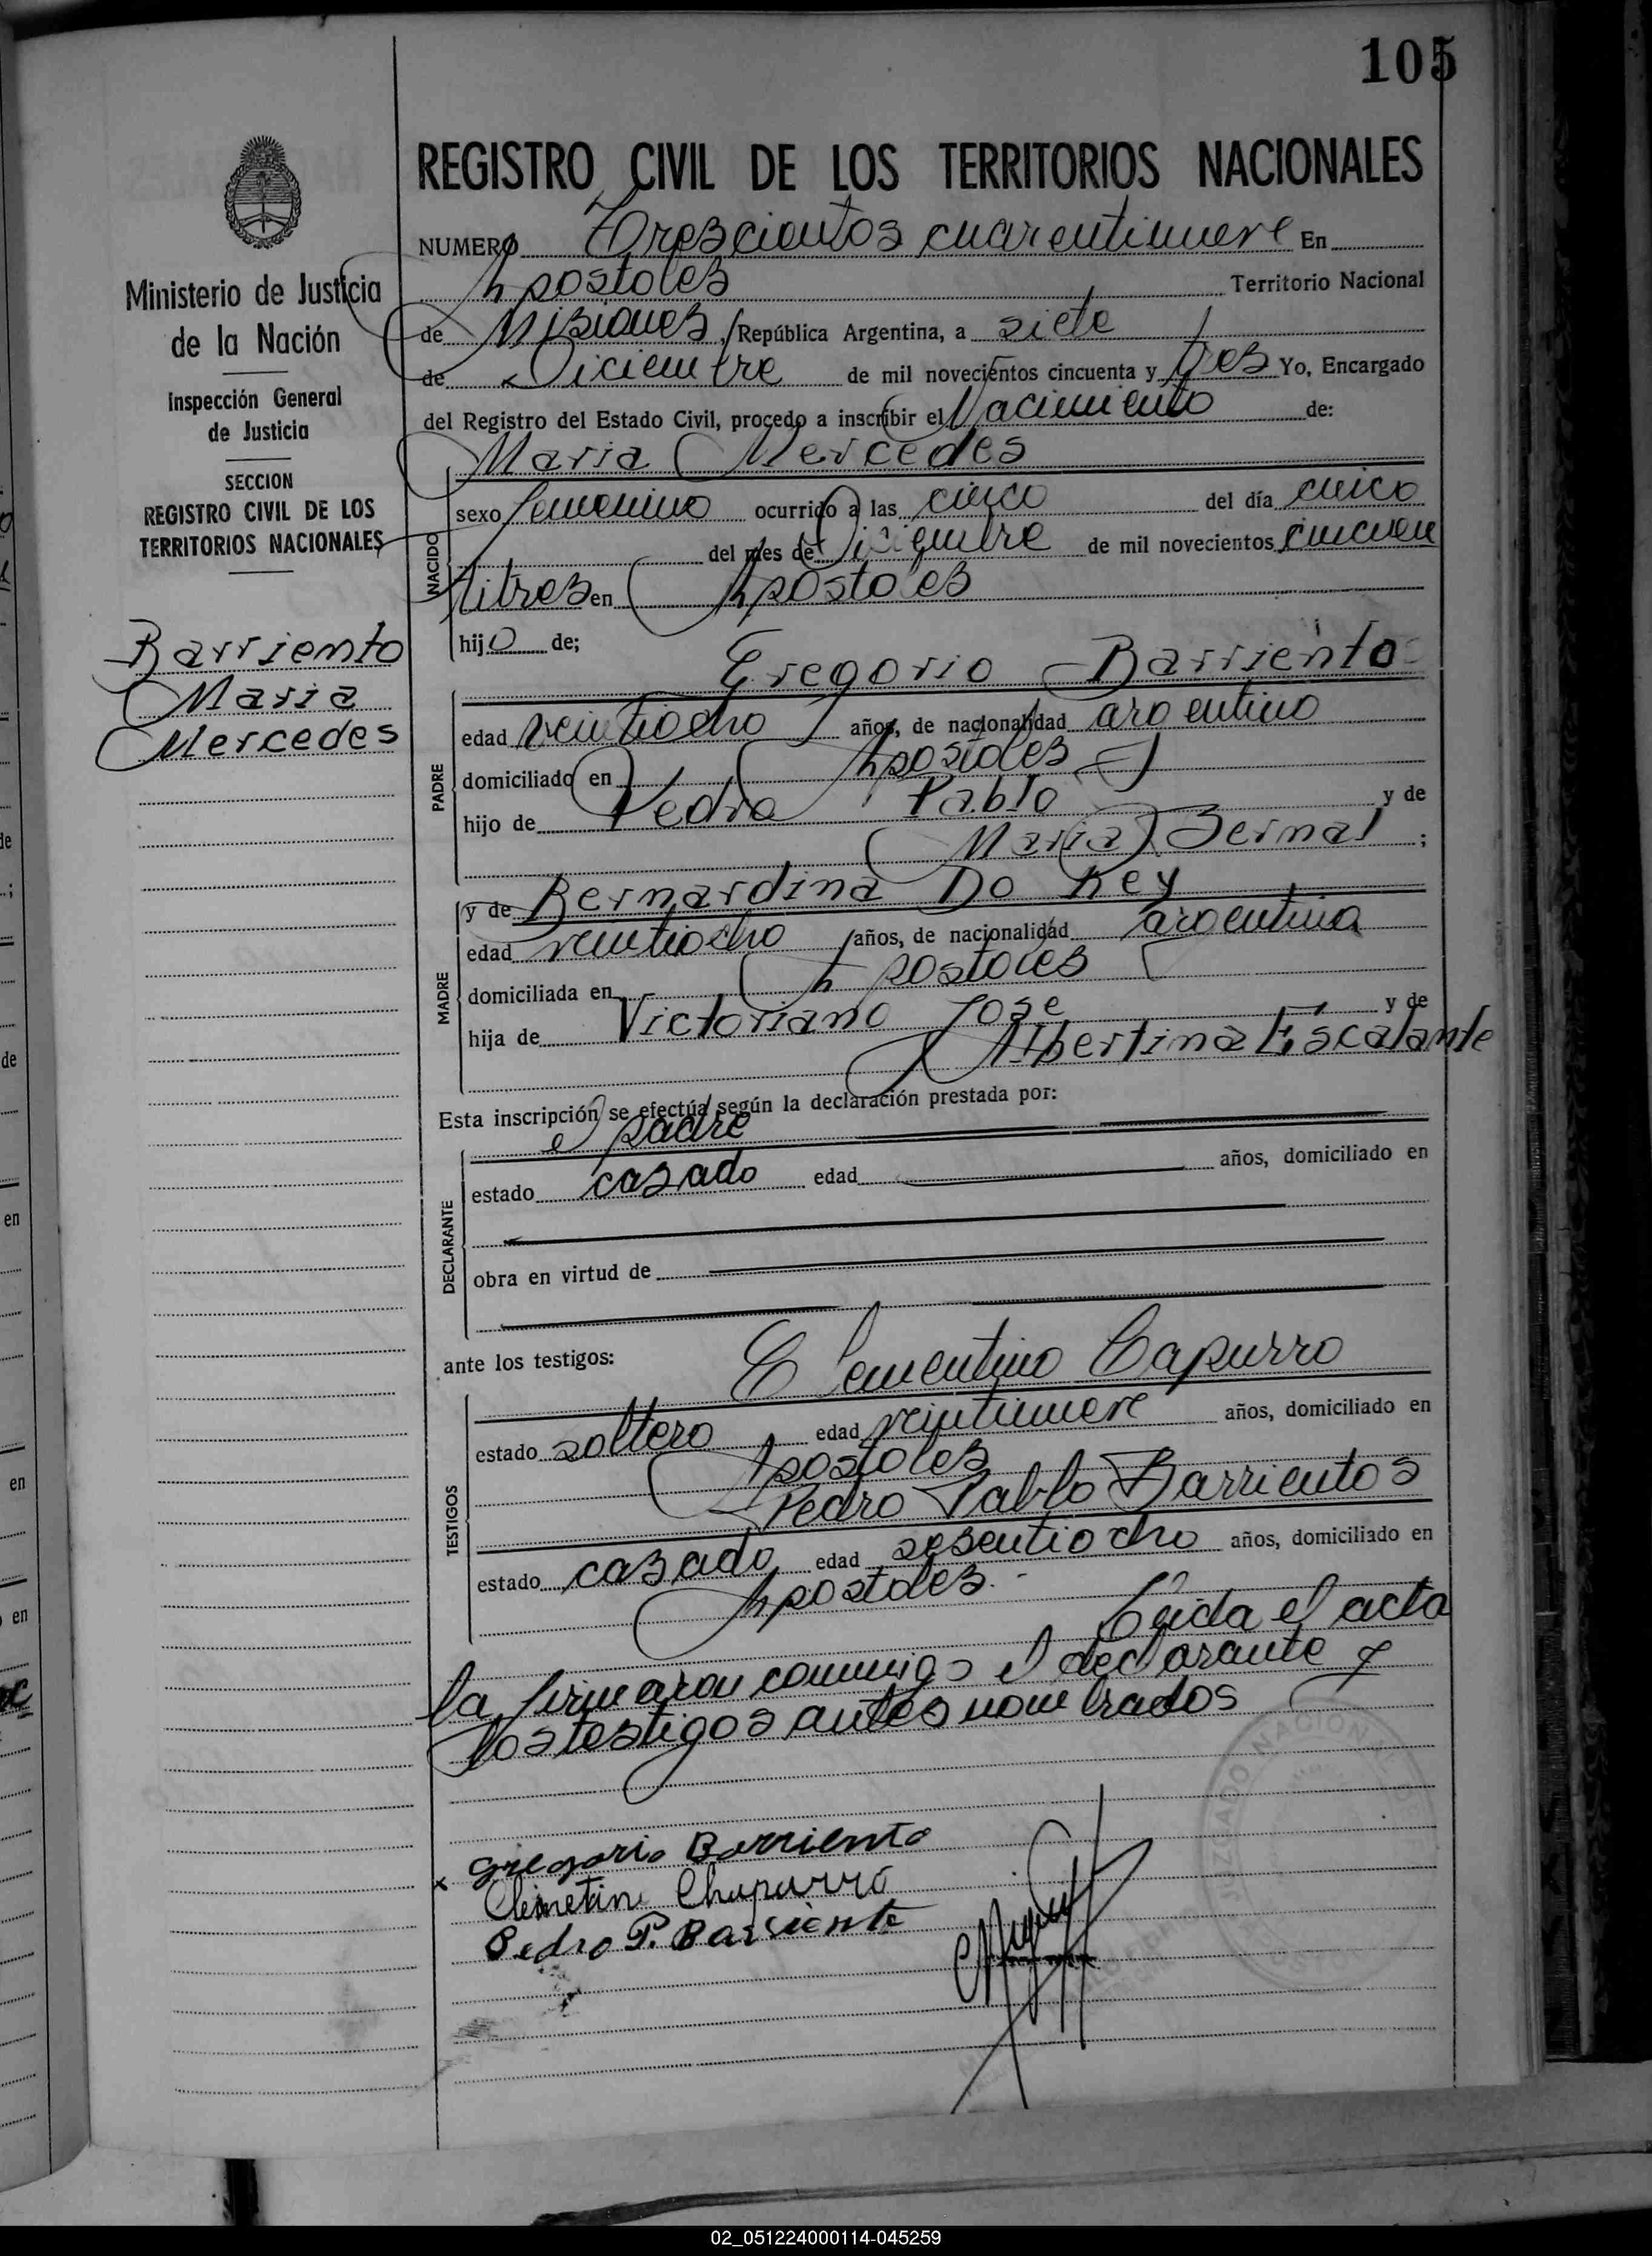 105
REGISTRO CIVIL DE LOS TERRITORIOS NACIONALES
NUMERO Trescientos cuarentinueve En
Apostoles Territorio Nacional
de Misiones, República Argentina, a siete
de Diciembre de mil novecientos cincuenta y tres Yo, Encargado
del Registro del Estado Civil, procedo a inscribir el Nacimiento de:
Maria Mercedes
NACIDO
sexo femenino ocurrido a las cinco del día cinco
del mes de Diciembre de mil novecientos cincuen
titres en Apostoles
hijo de;
Gregorio Barriento
PADRE
edad veintiocho años, de nacionalidad argentino
domiciliado en Apostoles
hijo de Pedro Pablo y de
Maria Bernal ;
y de Bernardina Do Rey
MADRE
edad veintiocho años, de nacionalidad argentina
domiciliada en Apostoles
hija de Victoriano Jose y de
Albertina Escalante
Esta inscripción se efectúa según la declaración prestada por:
el padre
DECLARANTE
estado casado edad años, domiciliado en
obra en virtud de
ante los testigos:
Clementino Capurro
TESTIGOS
estado soltero edad veintinueve años, domiciliado en
Apostoles
Pedro Pablo Barrientos
estado casado edad sesentiocho años, domiciliado en
Apostoles.-
Leida el acta
la firmaron conmigo el declarante y
los testigos antes nombrados
Gregorio Barriento
Clemetin Chapurro
Pedro P. Barriento
Ministerio de Justicia
de la Nación
Inspección General
de Justicia
SECCION
REGISTRO CIVIL DE LOS
TERRITORIOS NACIONALES
Barriento
Maria
Mercedes
02_051224000114-045259